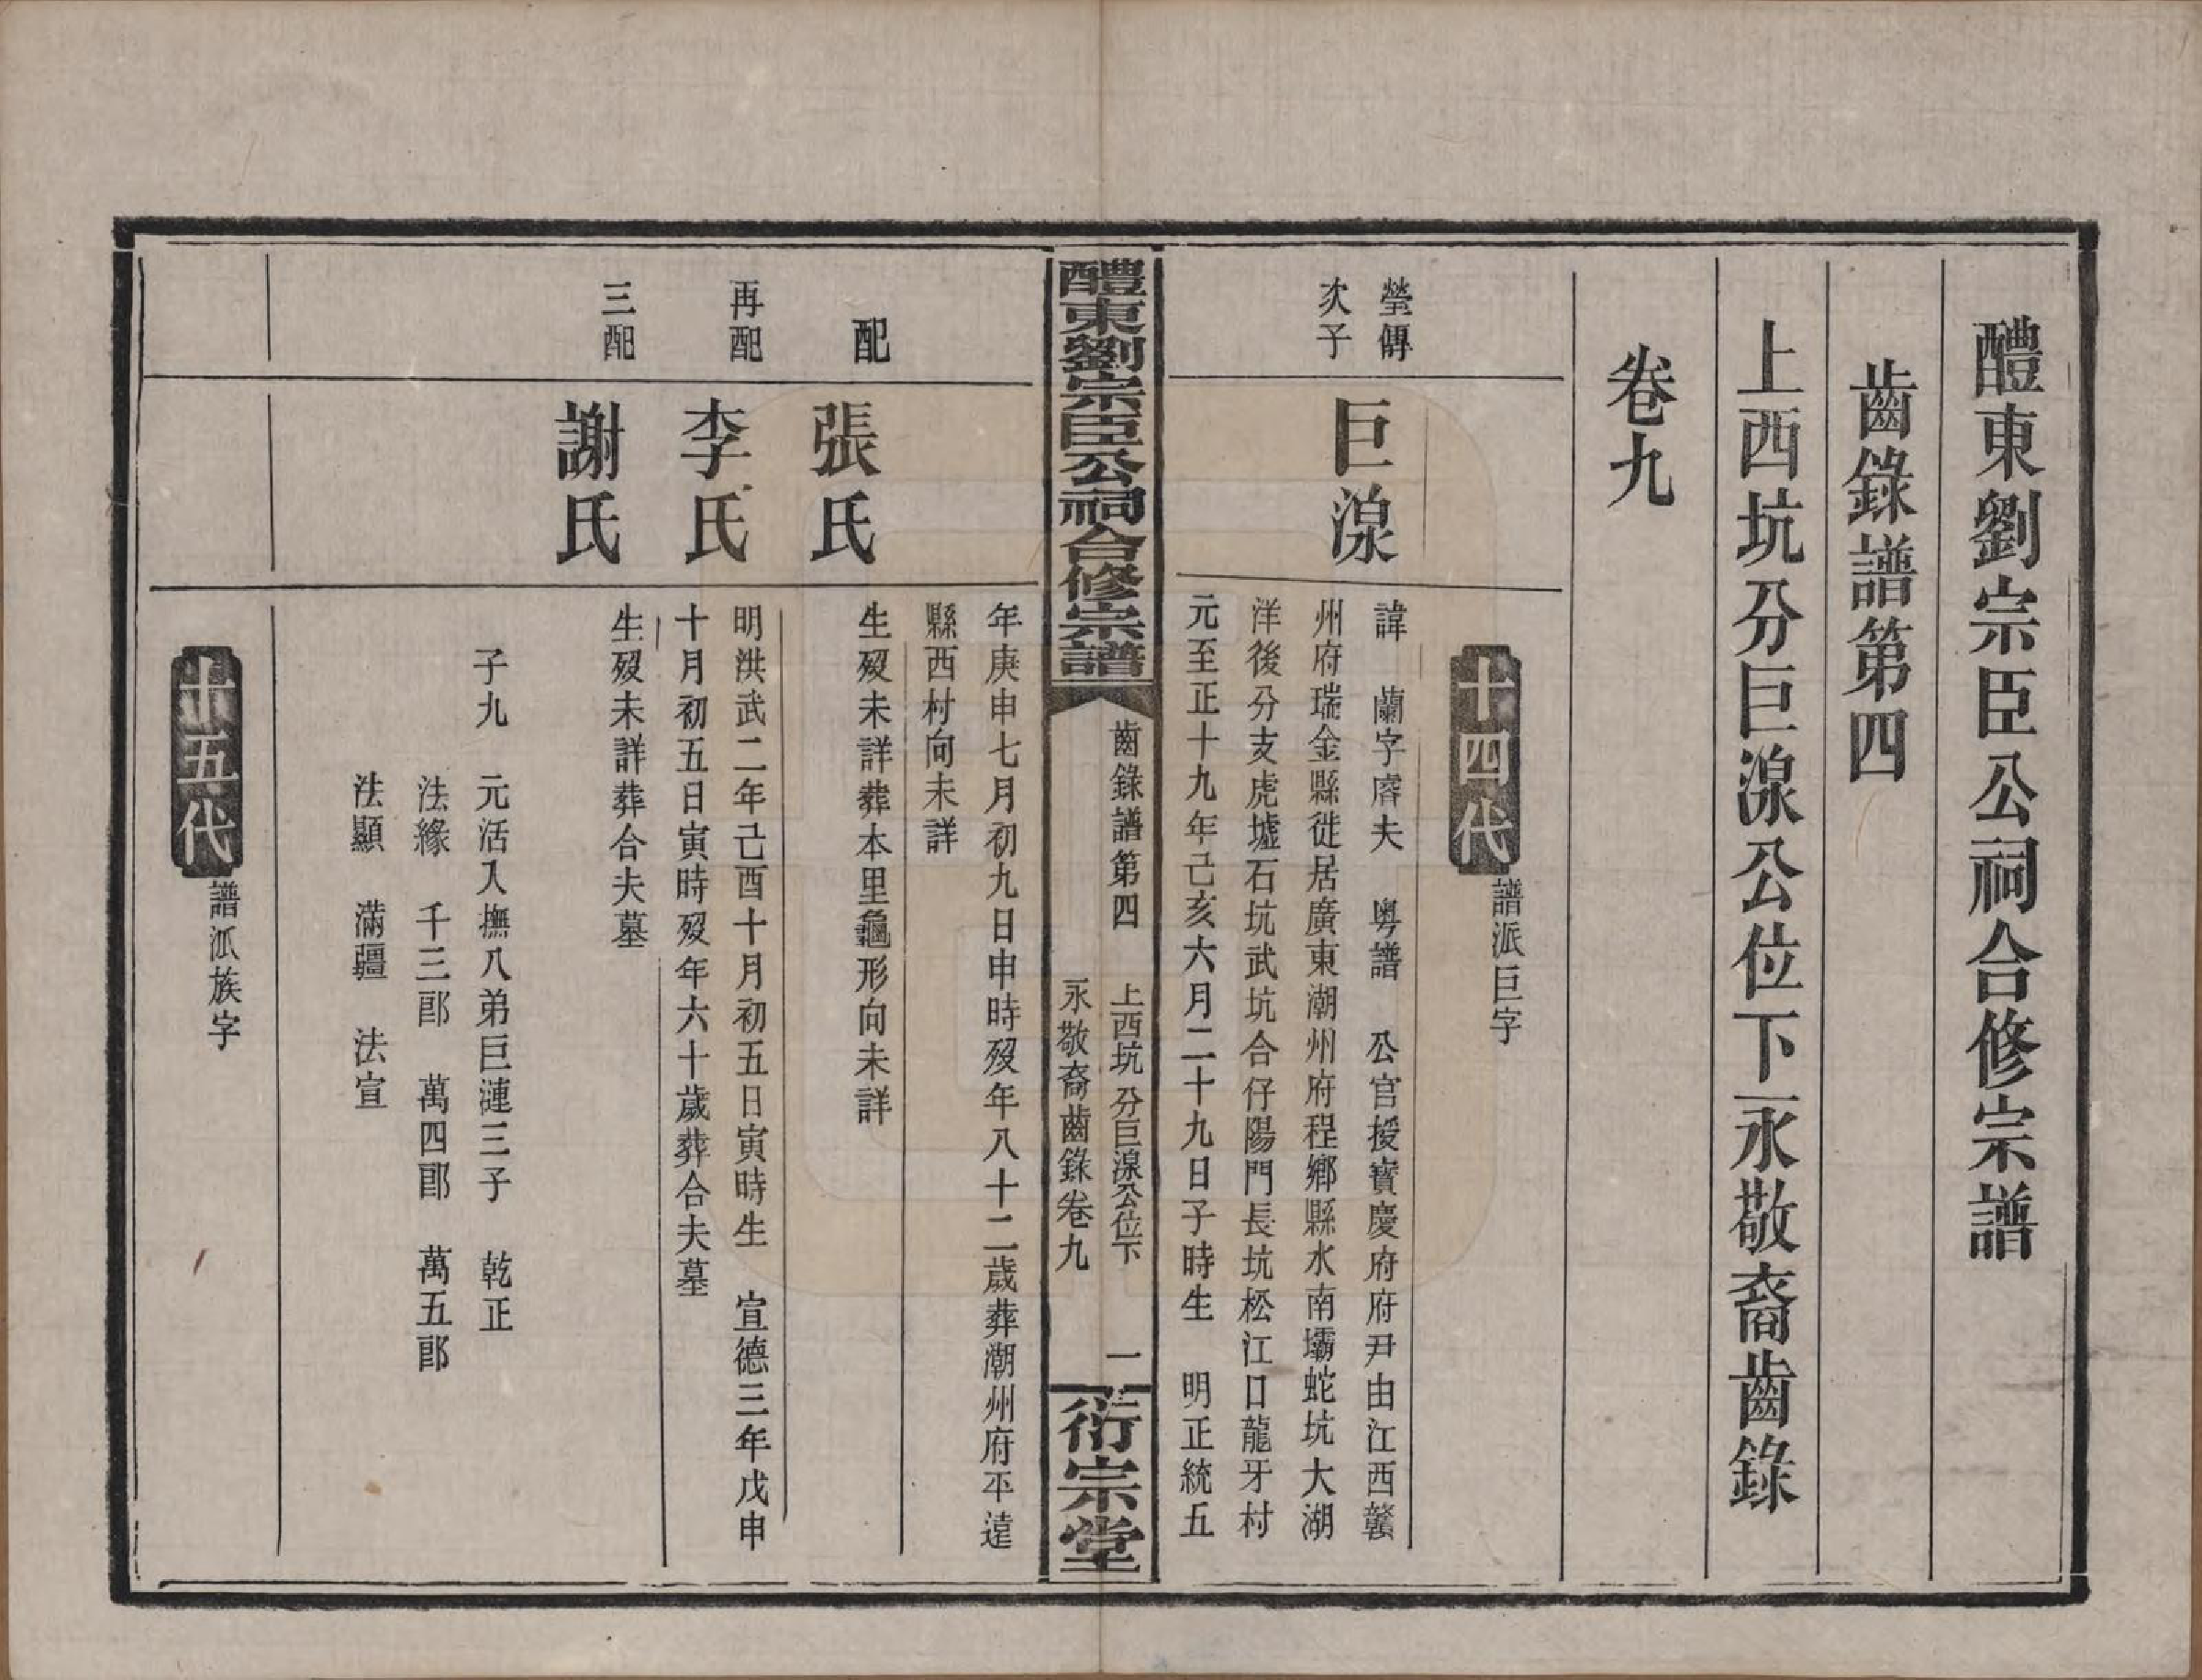 醴東劉宗臣公祠合修宗譜
齒錄譜第四
上西坑分巨湶公位下永敬裔齒錄
卷九
十四代
譜派巨字
瑩傳
次子
巨湶
諱　蘭字睿夫　粵譜　公官授寶慶府府尹由江西贛
州府瑞金縣徙居廣東潮州府程鄉縣水南壩蛇坑大湖
洋後分支虎墟石坑武坑合仔陽門長坑松江口龍牙村
元至正十九年己亥六月二十九日子時生　明正統五
醴東劉宗臣公祠合修宗譜
齒錄譜第四
上西坑分巨湶公位下
永敬裔齒錄卷九
一
衍宗堂
年庚申七月初九日申時歿年八十二歲葬潮州府平遠
縣西村向未詳
配
張氏
生歿未詳葬本里龜形向未詳
再配
李氏
明洪武二年己酉十月初五日寅時生　宣德三年戊申
十月初五日寅時歿年六十歲葬合夫墓
三配
謝氏
生歿未詳葬合夫墓
子九　元活入撫八弟巨漣三子　乾正
法緣　千三郎　萬四郎　萬五郎
法顯　滿疆　法宣
十五代
譜派族字